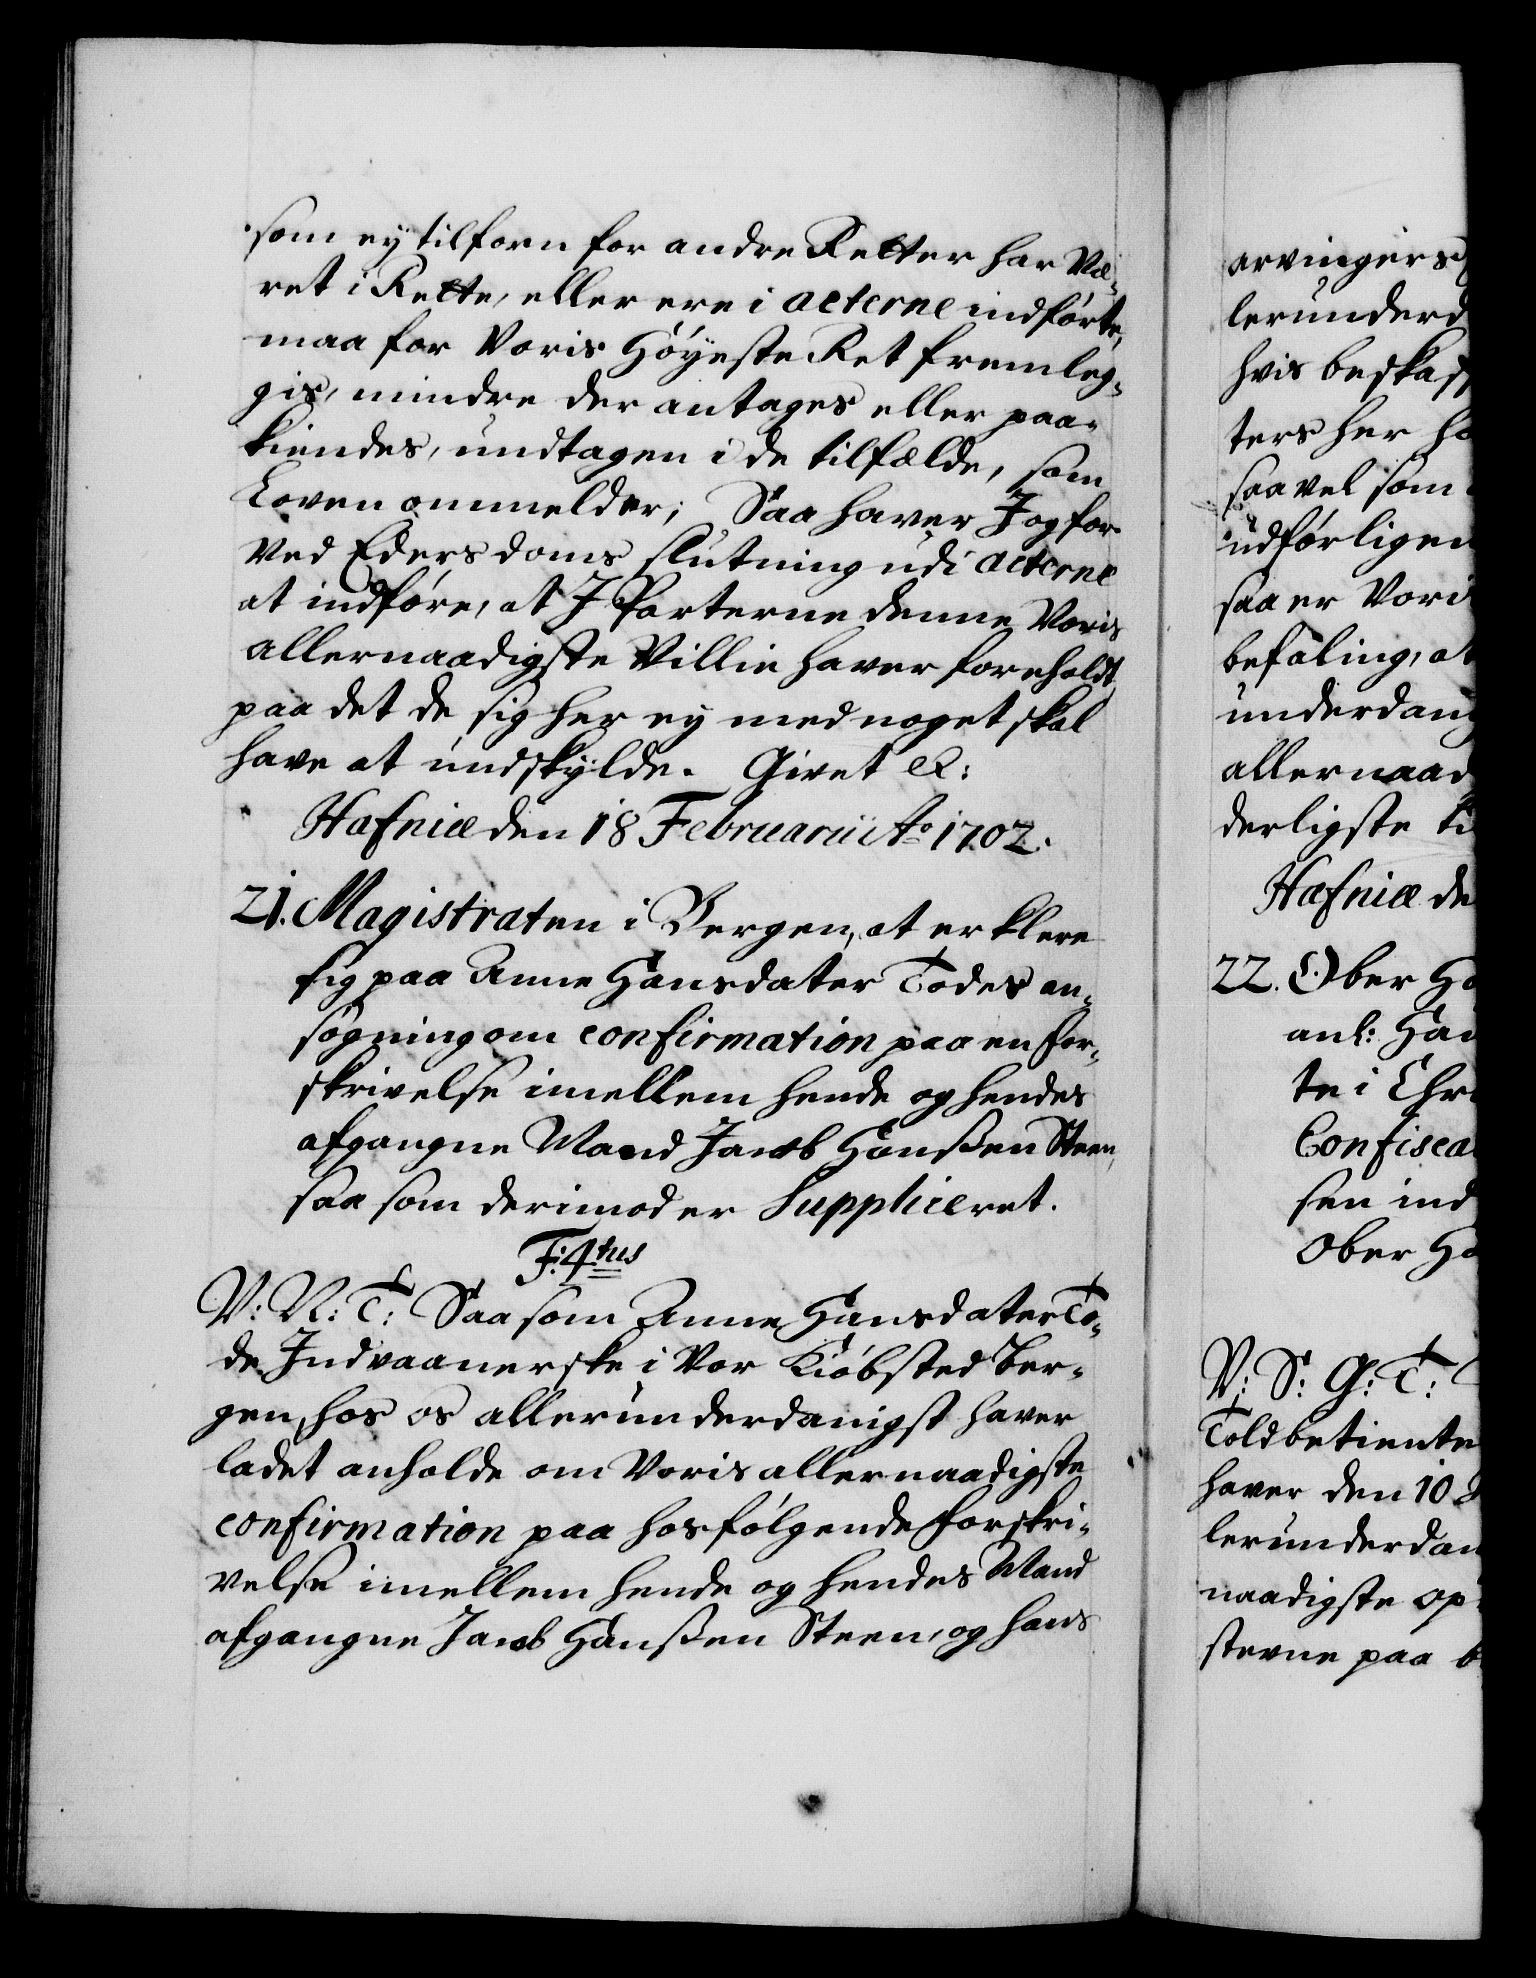 som ey tilforn for andre Retter har væ-
ret i Rette, eller ere i acterne indførte,
maa for Voris Høyeste Ret fremleg-
gis, mindre der antages eller paa-
kiendes, undtagen i de tilfælde, som
Loven ommelder; Saa haver I og for
ved Eders doms slutning udi acterne
at indføre, at I Parterne denne Voris
allernaadigste Villie haver foreholdt,
paa det de sig her ey med noget skal
have at undskylde. Givet &:
Hafniæ den 18 Februarii Ao 1702.
21. Magistraten i Bergen, at erklere
sig paa Anne Hansdater Todes an-
søgning om confirmation paa en for-
skrivelse imellem hende og hendes
afgangne Mand Jacob Hansßen Steen,
saa som derimod er Suppliceret.
F: 4tus
V: N: T: Saa som Anne Hansdater To-
de Indvaanerske i Vor Kiøbsted Ber-
gen, hos os allerunderdanigst haver
ladet anholde om Voris allernaadigste
confirmation paa hosfølgende forskri-
velse imellem hende og hendes Mand
afgangne Jacob Hansßen Steen, og hans
arvingers
lerunderd
hvis beskaff
ters her ha
saavel som
udførligen
saa er Vori
befaling, at
underdan
allernaad
derligste ti
Hafniæ de
22. Ober Ho
anl: Han
te i Chr
Confisca
sen ind
Ober Ho
V: S: G: T:
Toldbetiente
haver den 10
lerunderdan
naadigste op
stevne paa